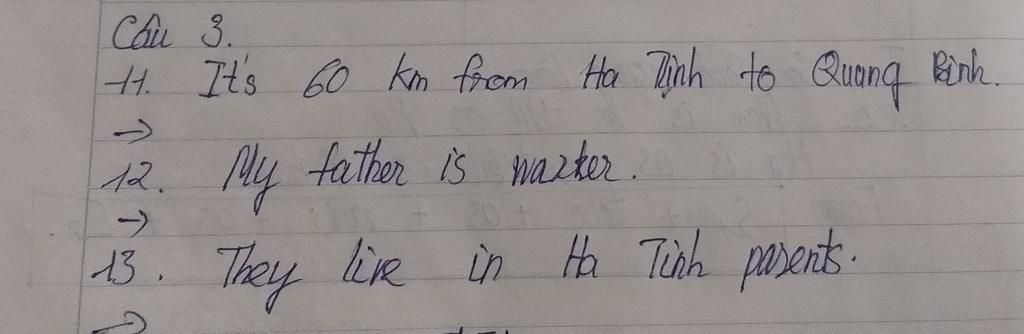 Câu 3.
11. It's 60 km from Ha Tinh to Quang Binh.
→
12. My father is warker.
→
13. They live in Ha Tinh parents.
→